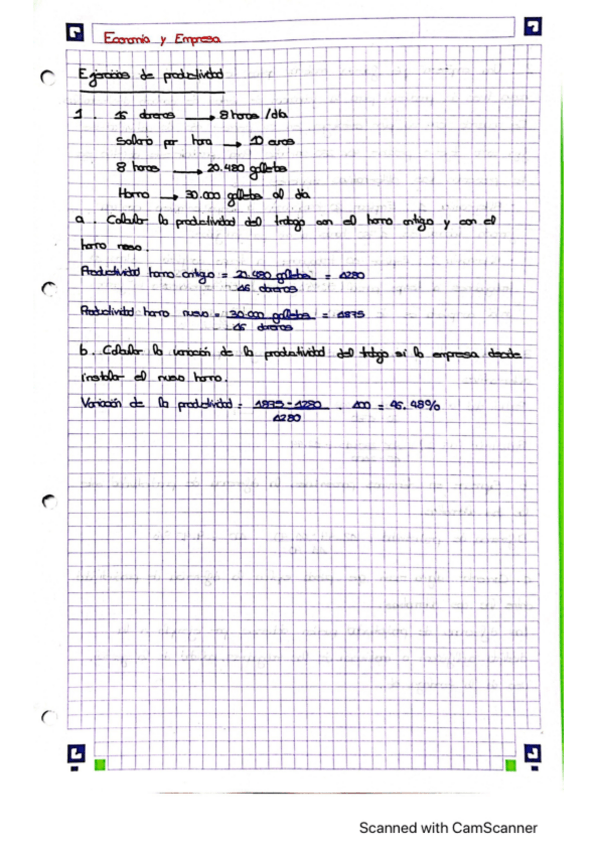 Economía y Empresa
Ejercicios de productividad
1. 16 obreros → 8 horas / día
Salario por hora → 10 euros
8 horas → 20.480 galletas
Horno → 30.000 galletas al día
a. Calcular la productividad del trabajo con el horno antiguo y con el
horno nuevo.
Productividad horno antiguo = 20.480 galletas = 1280
16 obreros
Productividad horno nuevo = 30.000 galletas = 1875
16 obreros
b. Calcular la variación de la productividad del trabajo si la empresa decide
instalar el nuevo horno.
Variación de la productividad = 1875 - 1280 . 100 = 46.48%
1280
Scanned with CamScanner